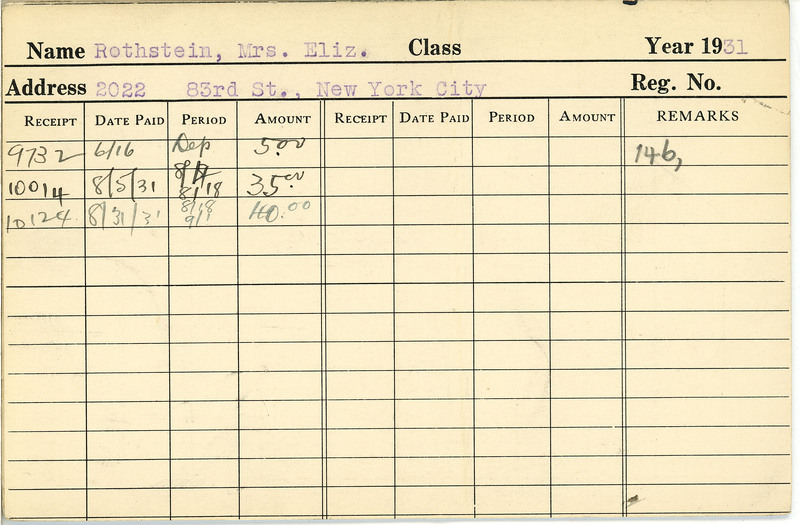 Name Rothstein, Mrs. Eliz. Class Year 1931
Address 2022 83rd St., New York City Reg. No.
RECEIPT DATE PAID PERIOD AMOUNT RECEIPT DATE PAID PERIOD AMOUNT REMARKS
9732 6/16 Dep 5.00 146,
10014 8/5/31 8/4 8/18 35.00
10124 8/31/31 8/18 9/1 40.00